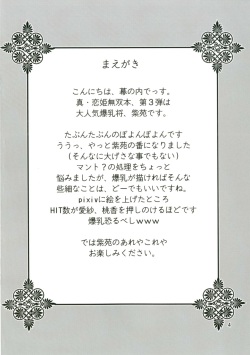 まえがき
こんにちは、幕の内でっす。
真・恋姫無双本、第３弾は
大人気爆乳将、紫苑です。
たぷんたぷんのぼよんぼよんです
ううっ、やっと紫苑の番になりました
(そんなに大げさな事でもない)
マント？の処理をちょっと
悩みましたが、爆乳が描ければそんな
些細なことは、どーでもいいですね。
pixivに絵を上げたところ
HIT数が愛紗、桃香を押しのけるほどです
爆乳恐るべしwww
では紫苑のあれやこれや
お楽しみください。
4